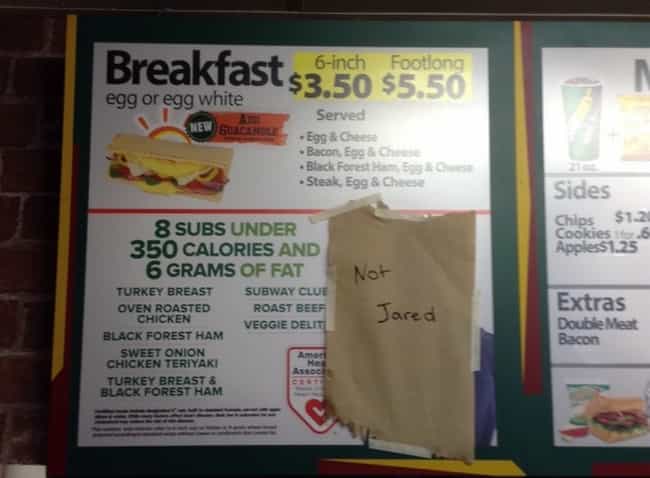 Breakfast
egg or egg white
6-inch Footlong
$3.50 $5.50
NEW
ADD
GUACAMOLE
Served
• Egg & Cheese
• Bacon, Egg & Cheese
• Black Forest Ham, Egg & Cheese
• Steak, Egg & Cheese
8 SUBS UNDER
350 CALORIES AND
6 GRAMS OF FAT
TURKEY BREAST
OVEN ROASTED
CHICKEN
BLACK FOREST HAM
SWEET ONION
CHICKEN TERIYAKI
TURKEY BREAST &
BLACK FOREST HAM
SUBWAY CLUB
ROAST BEEF
VEGGIE DELIT
Not
Jared
21 oz.
+
Sides
Chips $1.2
Cookies 1 for .6
Apples $1.25
Extras
Double Meat
Bacon